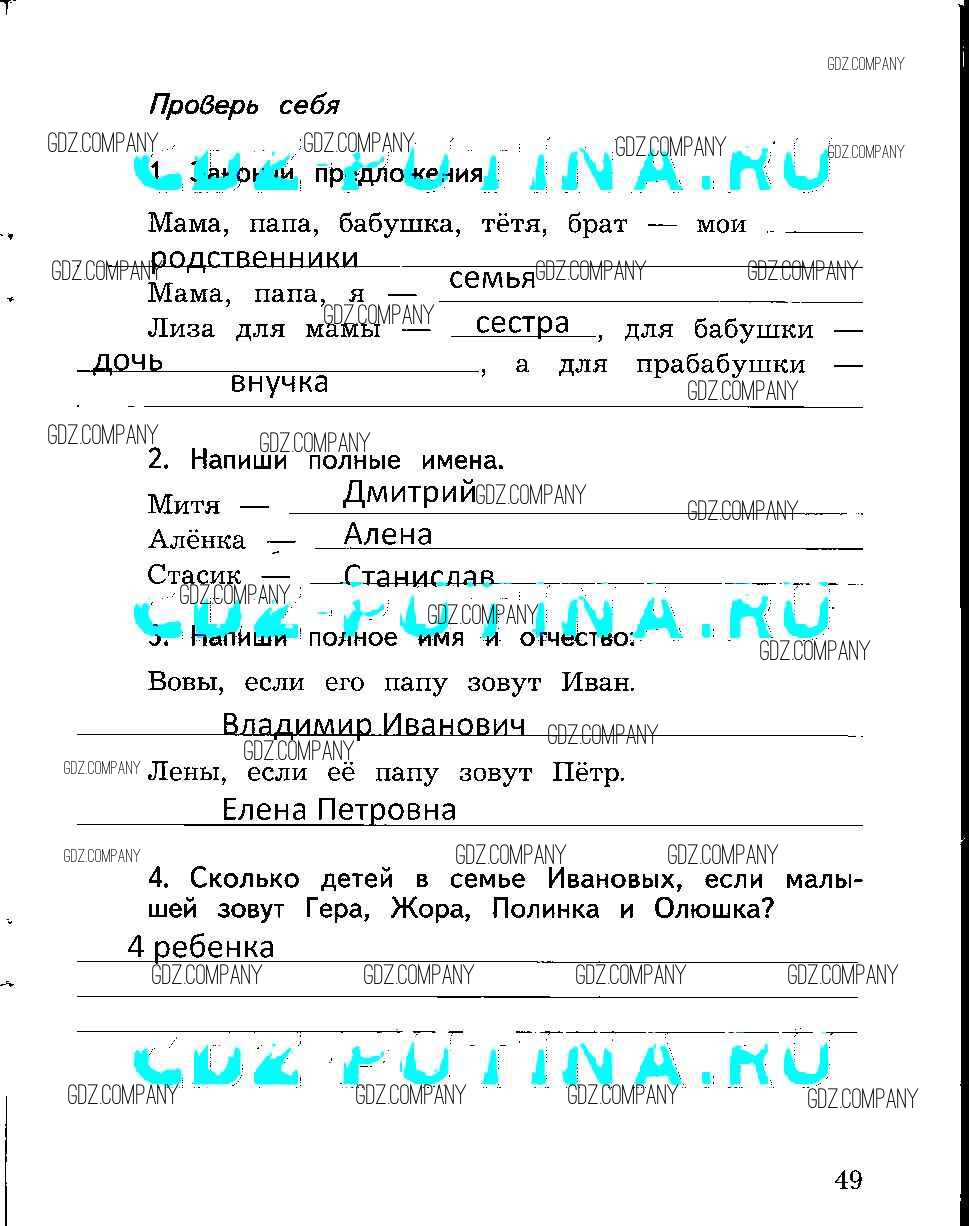 GDZ.COMPANY
Проверь себя
GDZ.COMPANY GDZ.COMPANY GDZ.COMPANY GDZ.COMPANY
1. Закончи предложения.
Мама, папа, бабушка, тётя, брат — мои
родственники
GDZ.COMPANY GDZ.COMPANY GDZ.COMPANY
Мама, папа, я — семья
GDZ.COMPANY
Лиза для мамы — сестра, для бабушки —
дочь, а для прабабушки —
внучка
GDZ.COMPANY
GDZ.COMPANY GDZ.COMPANY
2. Напиши полные имена.
Митя — Дмитрий
GDZ.COMPANY GDZ.COMPANY
Алёнка — Алена
Стасик — Станислав
GDZ.COMPANY GDZ.COMPANY
3. Напиши полное имя и отчество:
GDZ.COMPANY
Вовы, если его папу зовут Иван.
Владимир Иванович
GDZ.COMPANY GDZ.COMPANY
GDZ.COMPANY
Лены, если её папу зовут Пётр.
Елена Петровна
GDZ.COMPANY GDZ.COMPANY GDZ.COMPANY
4. Сколько детей в семье Ивановых, если малы-
шей зовут Гера, Жора, Полинка и Олюшка?
4 ребенка
GDZ.COMPANY GDZ.COMPANY GDZ.COMPANY GDZ.COMPANY
GDZ.COMPANY GDZ.COMPANY GDZ.COMPANY GDZ.COMPANY
49